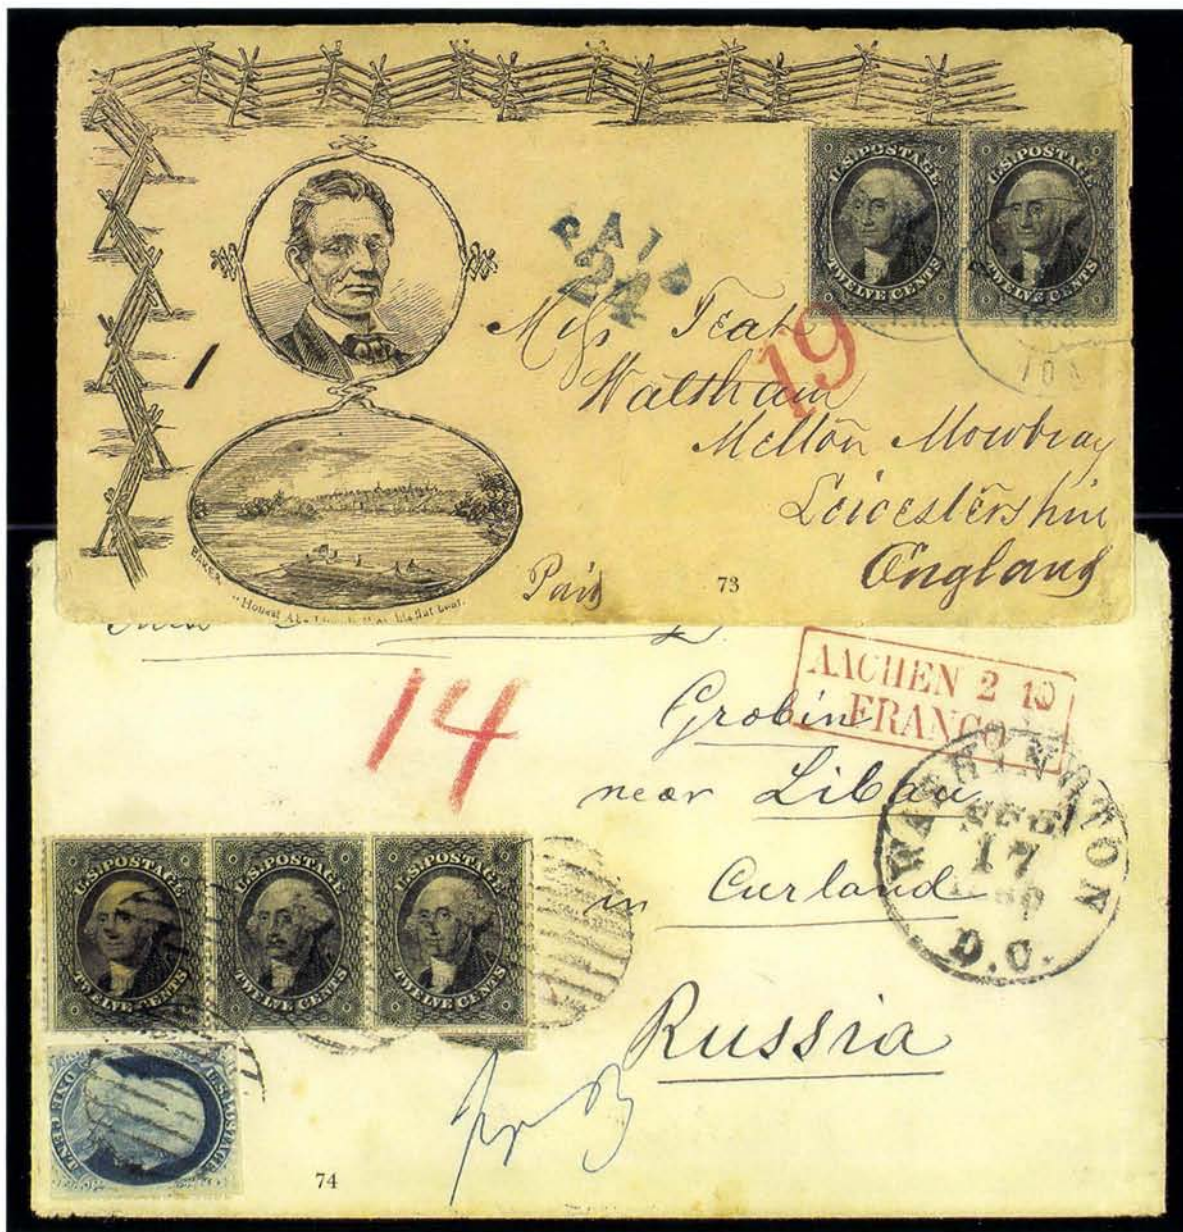 U.S. POSTAGE
TWELVE CENTS
U.S. POSTAGE
TWELVE CENTS
PAID
24
19
Miss Teat
Waltham
Melton Mowbray
Leicestershire
England
Paid
BAKER
"Honest Abe
flat boat.
73
AACHEN 2 10
FRANCO
14
Grobin
near Libau
in Curland
Russia
WASHINGTON
17
D.C.
U.S. POSTAGE
TWELVE CENTS
U.S. POSTAGE
TWELVE CENTS
U.S. POSTAGE
TWELVE CENTS
U.S. POSTAGE
ONE CENT
74